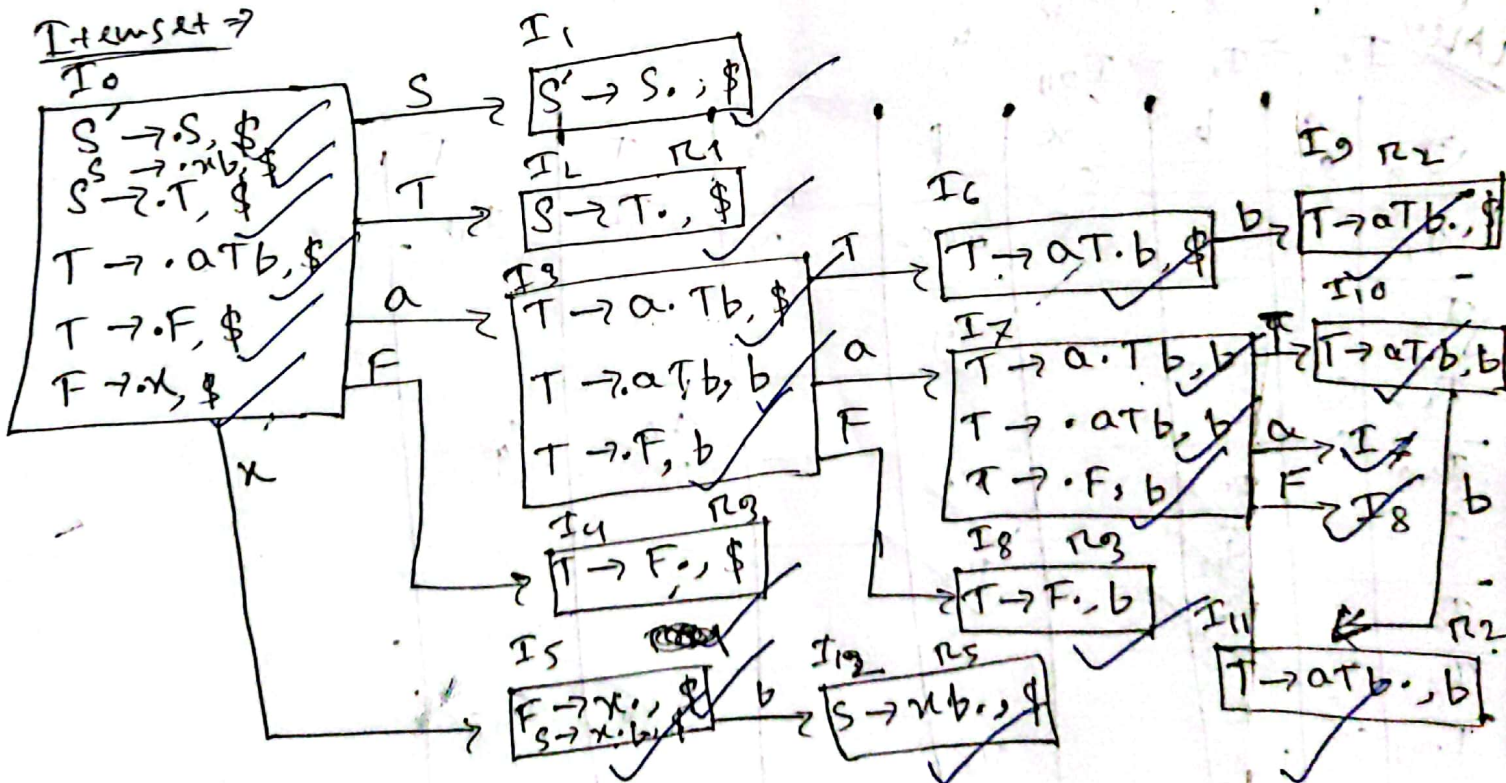 Itemset ⇒
I0
S' → .S, $
S → .xb, $
S → .T, $
T → .aTb, $
T → .F, $
F → .x, $
S
T
a
F
x
I1
S' → S., $
I2 R1
S → T., $
I3
T → a.Tb, $
T → .aTb, b
T → .F, b
T
a
F
I4 R3
T → F., $
I5
F → x., $
S → x.b, $
b
I12 R5
S → xb., $
I6
T → aT.b, $
b
I9 R2
T → aTb., $
I7
T → a.Tb, b
T → .aTb, b
T → .F, b
T
I10
T → aT.b, b
a I7
F I8
b
I8 R3
T → F., b
I11 R2
T → aTb., b